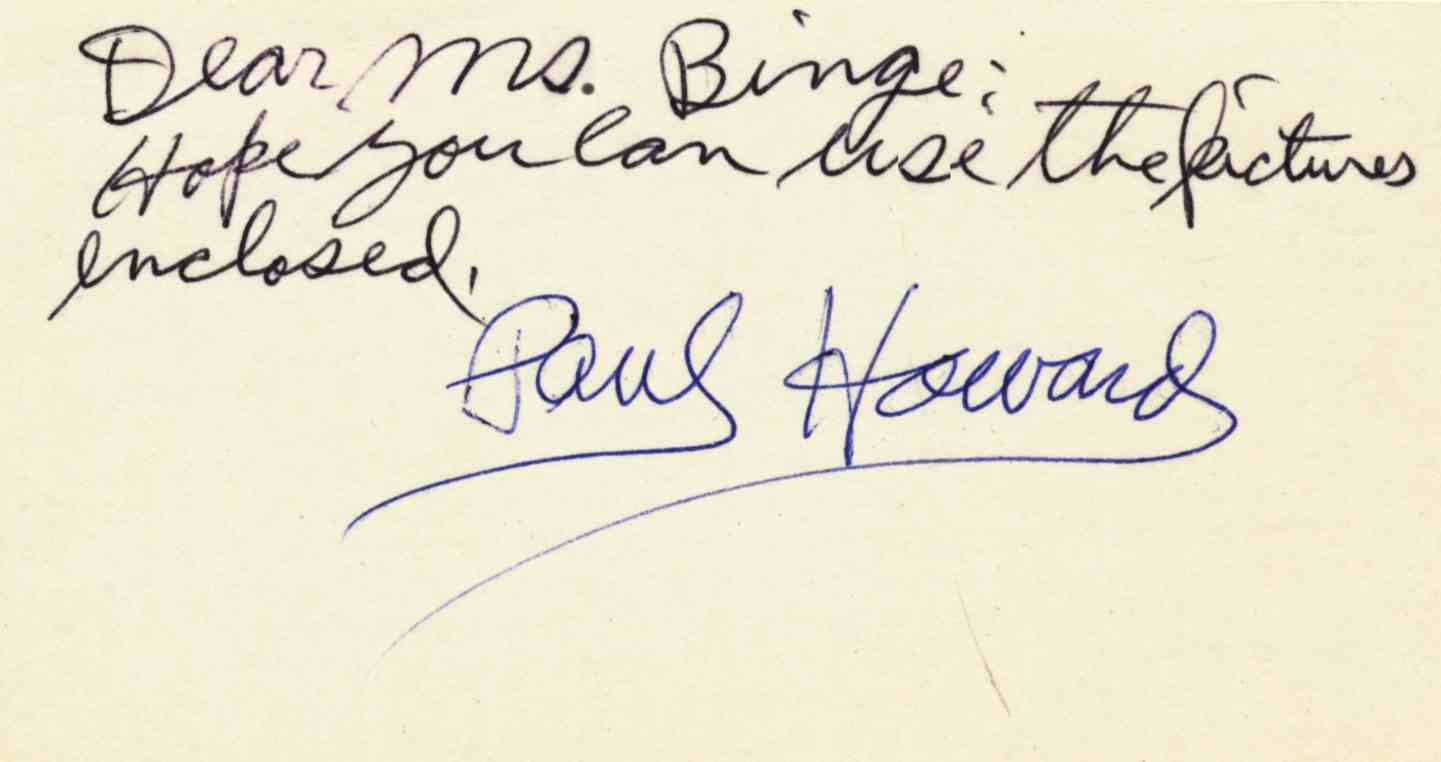 Dear Ms. Binge:
Hope you can use the pictures
enclosed.
Paul Howard